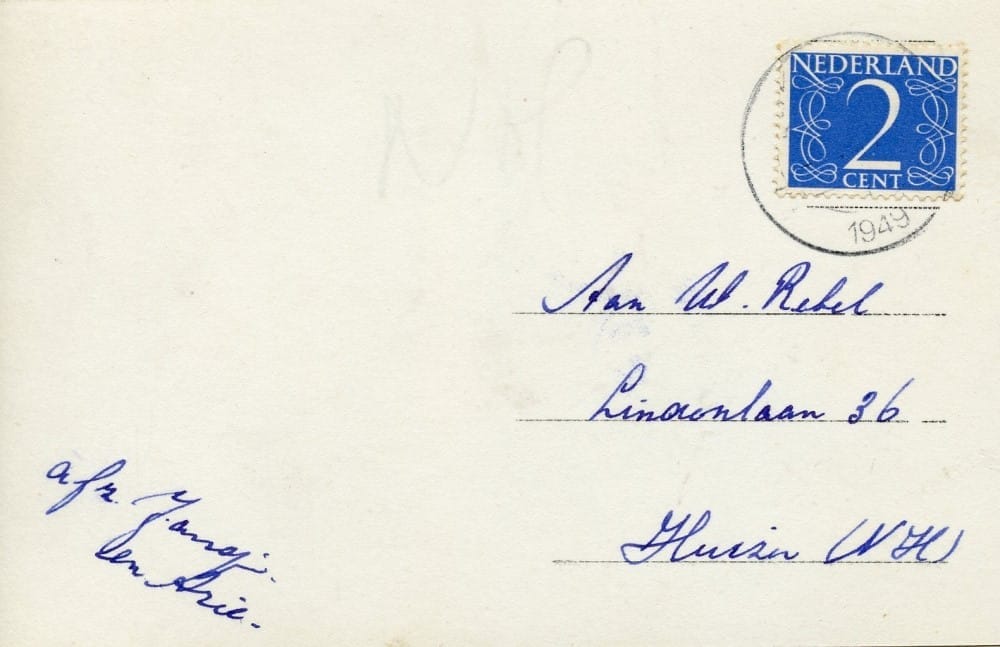 NEDERLAND
2
CENT
1949
Aan W. Rebel
Lindenlaan 36
Huizen (NH)
afz.
en Arie.